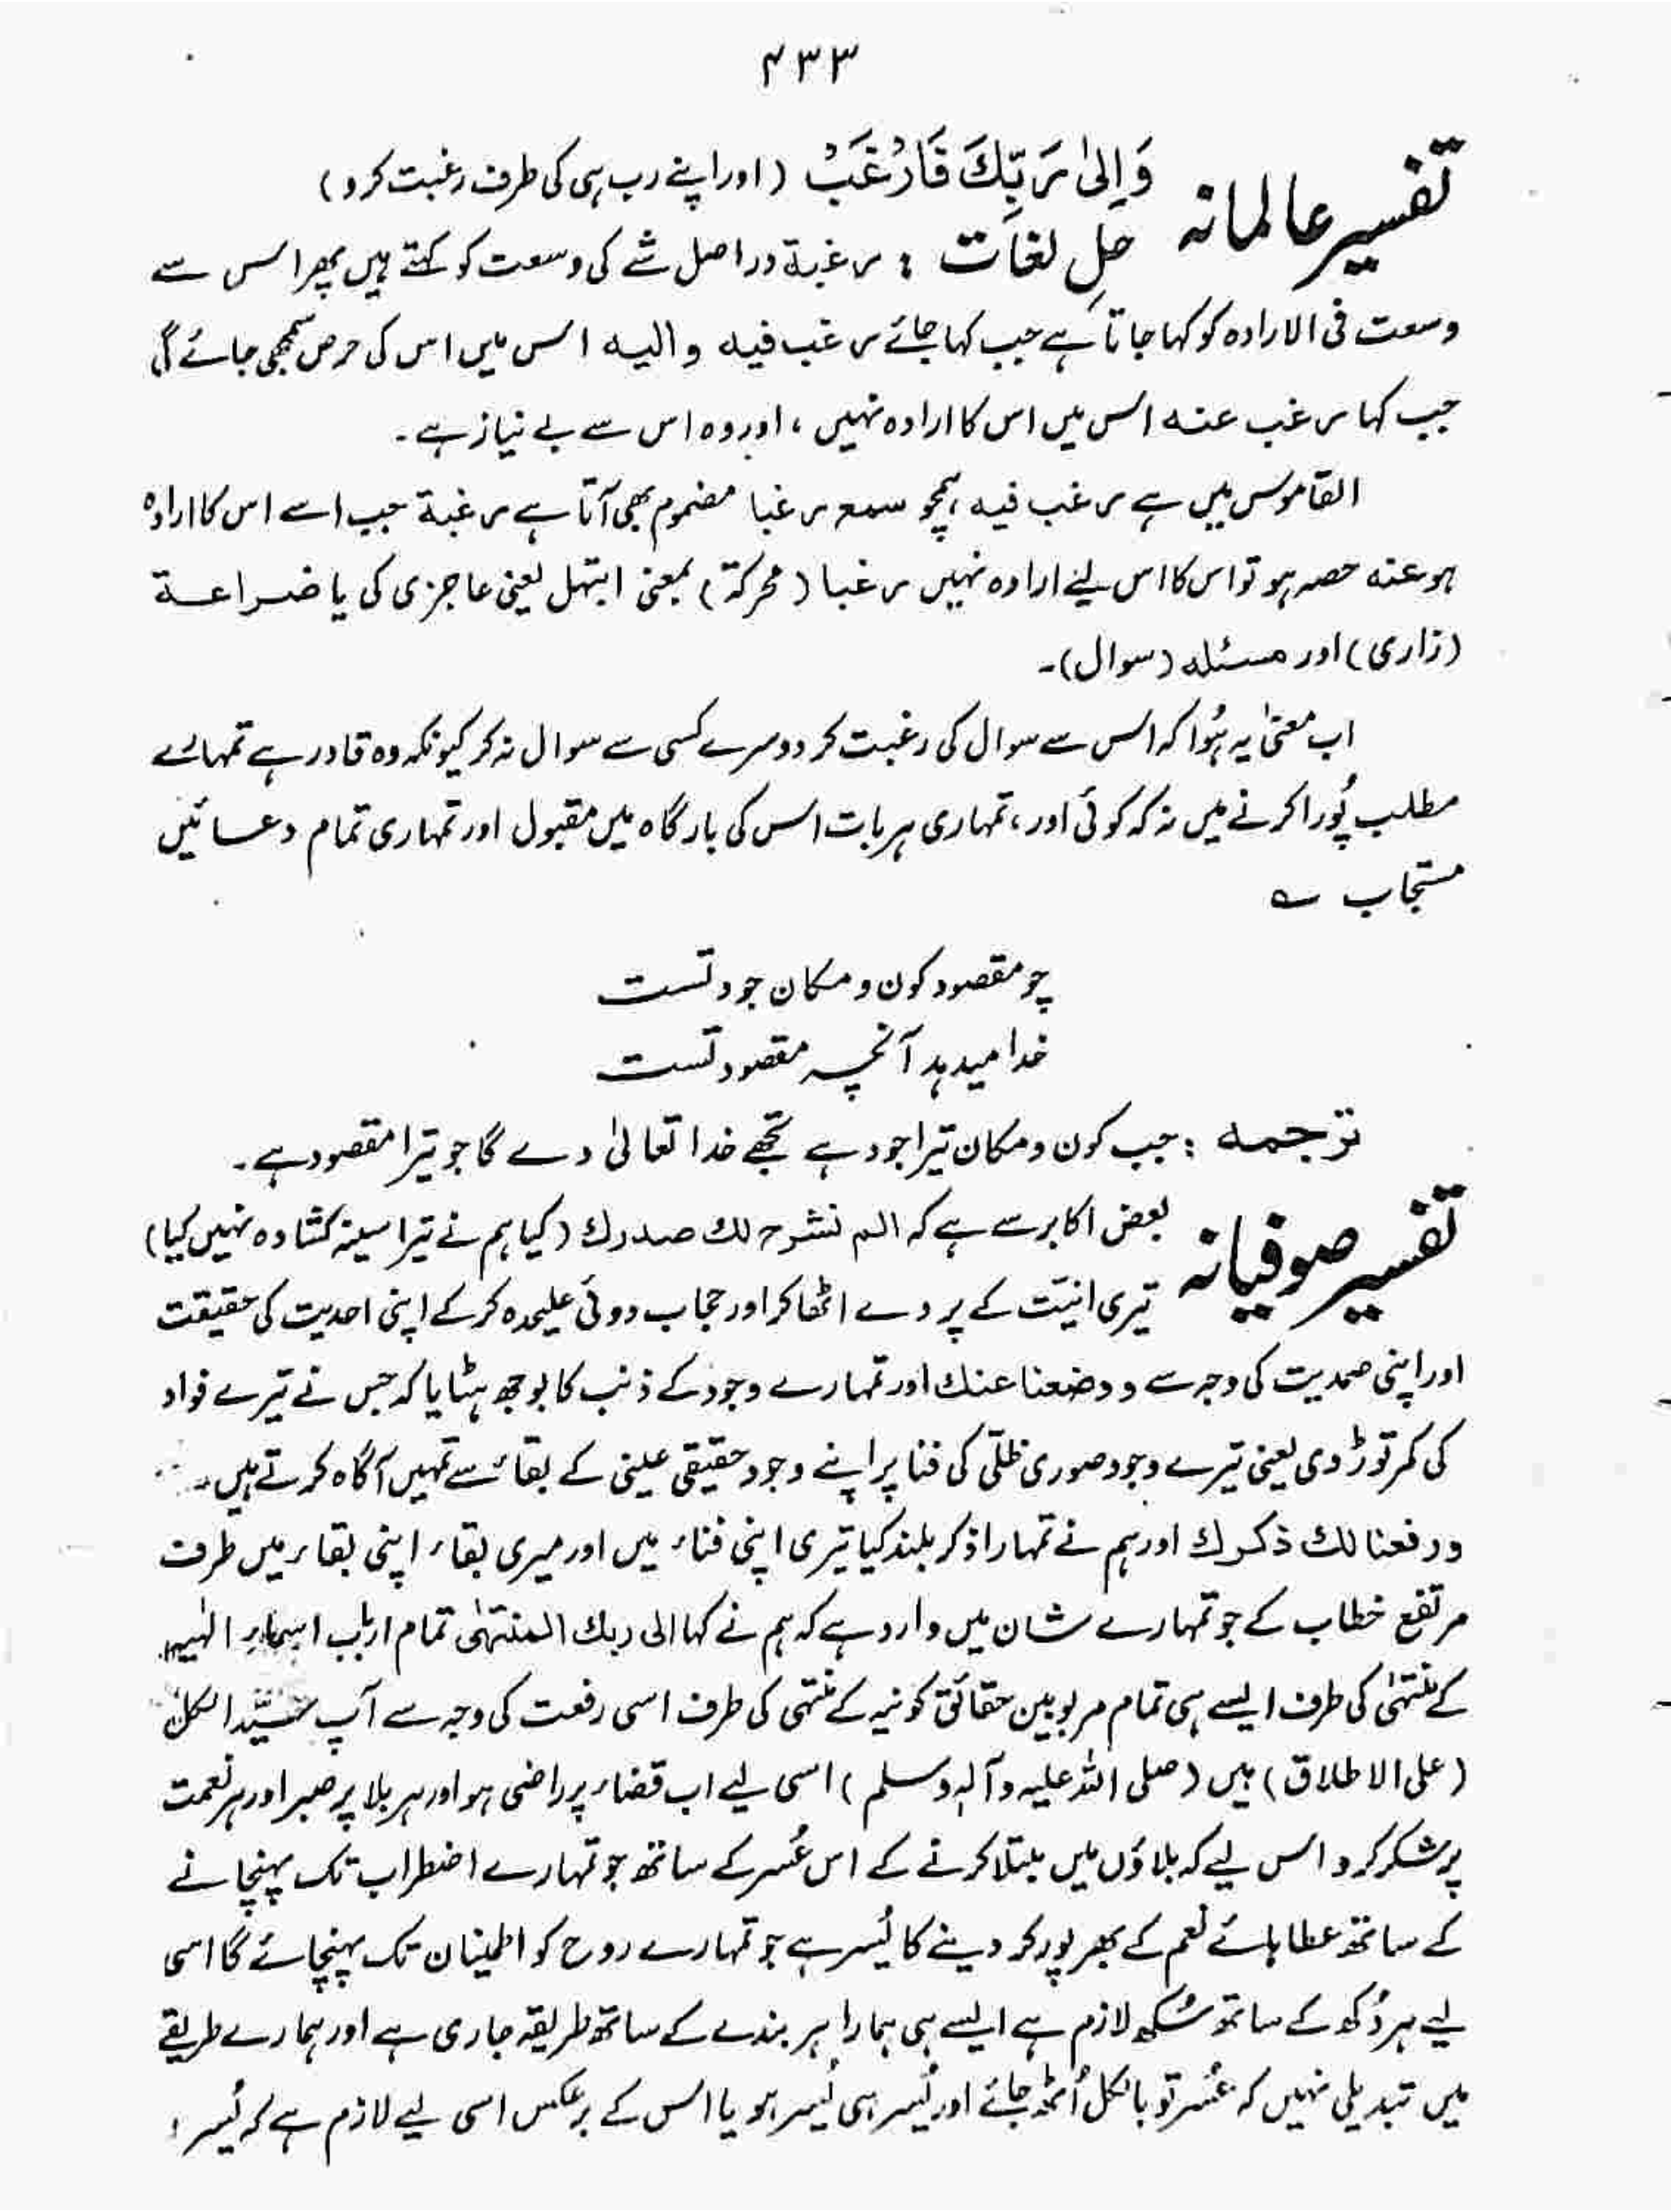 ۴۳۳
تفسیر عالمانہ وَاِلیٰ رَبِّكَ فَارْغَبْ (اور اپنے رب ہی کی طرف رغبت کرو)
حل لغات : رغبة دراصل شے کی وسعت کو کہتے ہیں پھر اس سے
وسعت فی الارادہ کو کہا جاتا ہے جب کہا جائے رغب فیه والیه اس میں اس کی حرص سمجھی جائے گی
جب کہا رغب عنه اس میں اس کا ارادہ نہیں ، اور وہ اس سے بے نیاز ہے ۔
القاموس میں ہے رغب فیه ہمچو سمع رغبا مضموم بھی آتا ہے رغبة جب اسے اس کا ارادہ
ہو عنه حصہ ہو تو اس کا اس لیے ارادہ نہیں رغبا (محرکۃ) بمعنیٰ ابتہل یعنی عاجزی کی یا ضراعة
(زاری) اور مسئلہ (سوال)۔
اب معنیٰ یہ ہُوا کہ اس سے سوال کی رغبت کر دوسرے کسی سے سوال نہ کر کیونکہ وہ قادر ہے تمہارے
مطلب پُورا کرنے میں نہ کہ کوئی اور ، تمہاری ہر بات اس کی بارگاہ میں مقبول اور تمہاری تمام دعائیں
مستجاب ؎
چو مقصود کون و مکان جود تست
خدا میدہد آنچہ مقصود تست
ترجمہ : جب کون و مکان تیرا جود ہے تجھے خدا تعالیٰ دے گا جو تیرا مقصود ہے ۔
تفسیر صوفیانہ بعض اکابر سے ہے کہ الم نشرح لك صدرك (کیا ہم نے تیرا سینہ کشادہ نہیں کیا)
تیری انیّت کے پردے اٹھا کر اور حجاب دوئی علیحدہ کر کے اپنی احدیت کی حقیقت
اور اپنی صمدیت کی وجہ سے و وضعنا عنك اور تمہارے وجود کے ذنب کا بوجھ ہٹایا کہ جس نے تیرے فواد
کی کمر توڑ دی یعنی تیرے وجود صوری ظلّی کی فنا پر اپنے وجود حقیقی عینی کے بقاء سے تمہیں آگاہ کرتے ہیں۔
و رفعنا لك ذكرك اور ہم نے تمہارا ذکر بلند کیا تیری اپنی فناء میں اور میری بقاء اپنی بقاء میں طرف
مرتفع خطاب کے جو تمہارے شان میں وارد ہے کہ ہم نے کہا الی ربك المنتھٰی تمام ارباب اسماءِ الٰہیہ
کے منتہیٰ کی طرف ایسے ہی تمام مربوبین حقائق کونیہ کے منتہی کی طرف اسی رفعت کی وجہ سے آپ سیّد الکل
(علی الاطلاق) ہیں (صلی اللہ علیہ وآلہٖ وسلم) اسی لیے اب قضاء پر راضی ہو اور ہر بلا پر صبر اور ہر نعمت
پر شکر کرو اس لیے کہ بلاؤں میں مبتلا کرنے کے اس عُسر کے ساتھ جو تمہارے اضطراب تک پہنچانے
کے ساتھ عطا ہائے نعم کے بھرپور کر دینے کا یُسر ہے جو تمہارے روح کو اطمینان تک پہنچائے گا اسی
لیے ہر دُکھ کے ساتھ سُکھ لازم ہے ایسے ہی ہمارا ہر بندے کے ساتھ طریقہ جاری ہے اور ہمارے طریقے
میں تبدیلی نہیں کہ عُسر تو بالکل اُٹھ جائے اور یُسر ہی یُسر ہو یا اس کے برعکس اسی لیے لازم ہے کہ یُسر